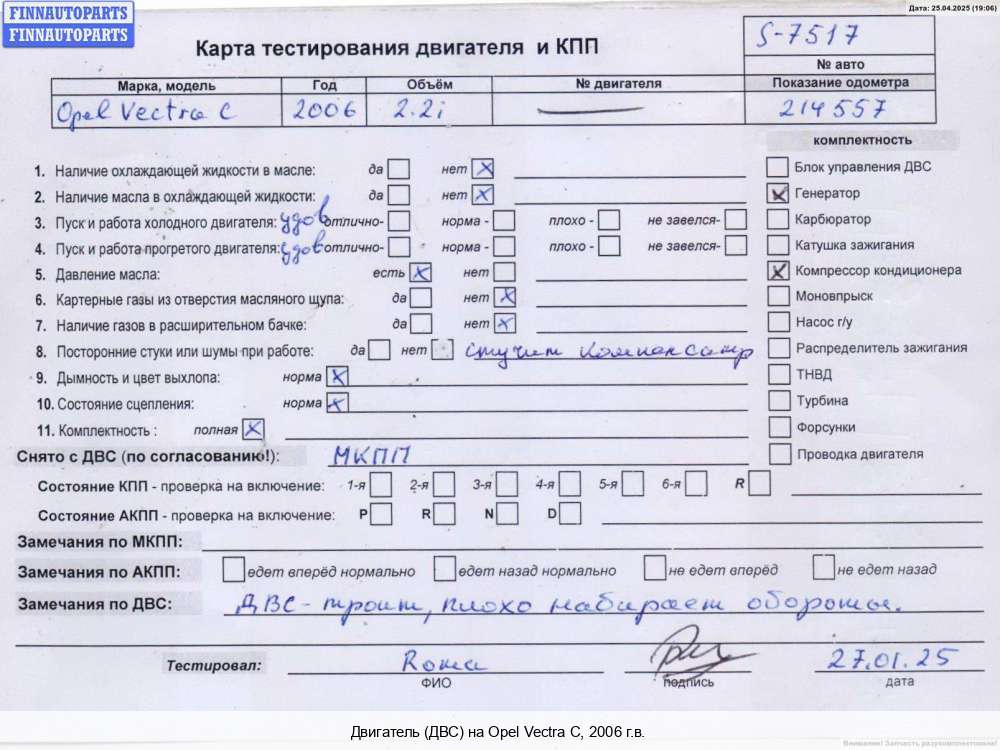 FINNAUTOPARTS
FINNAUTOPARTS
Дата: 25.04.2025 (19:06)
Карта тестирования двигателя и КПП
S-7517
№ авто
Марка, модель Год Объём № двигателя Показание одометра
Opel Vectra C 2006 2.2i 214557
комплектность
1. Наличие охлаждающей жидкости в масле: да нет X
Блок управления ДВС
2. Наличие масла в охлаждающей жидкости: да нет X
X Генератор
3. Пуск и работа холодного двигателя: удов отлично- норма - плохо - не завелся-
Карбюратор
4. Пуск и работа прогретого двигателя: удов отлично- норма - плохо - не завелся-
Катушка зажигания
5. Давление масла: есть X нет
X Компрессор кондиционера
6. Картерные газы из отверстия масляного щупа: да нет X
Моновпрыск
7. Наличие газов в расширительном бачке: да нет X
Насос г/у
8. Посторонние стуки или шумы при работе: да нет стучит компенсатор
Распределитель зажигания
9. Дымность и цвет выхлопа: норма X
ТНВД
10. Состояние сцепления: норма X
Турбина
11. Комплектность : полная X
Форсунки
Снято с ДВС (по согласованию!): МКПП
Проводка двигателя
Состояние КПП - проверка на включение: 1-я 2-я 3-я 4-я 5-я 6-я R
Состояние АКПП - проверка на включение: P R N D
Замечания по МКПП:
Замечания по АКПП: едет вперёд нормально едет назад нормально не едет вперёд не едет назад
Замечания по ДВС: ДВС - троит, плохо набирает обороты.
Тестировал: Рома 27.01.25
ФИО подпись дата
Двигатель (ДВС) на Opel Vectra C, 2006 г.в.
Внимание! Запчасть разукомплектована!